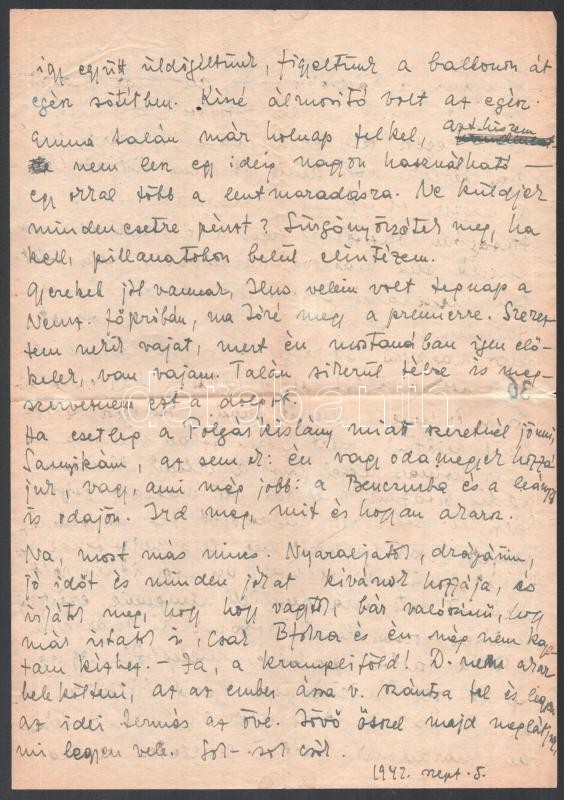 így együtt üldögéltünk, figyeltünk a balkonon át
egész sötétben. Kissé álmosító volt az egész.
Emma talán már holnap felkel, azt hiszem
nem lesz egy ideig nagyon használható —
egy orral több a lentmaradásra. Ne küldjek
mindenesetre pénzt? Sürgönyözzétek meg, ha
kell, pillanatokon belül elintézem.
Gyerekek jól vannak, Ilus velem volt tegnap a
Nemz. főpróbán, ma Sóré megy a premierre. Szerez-
tem nekik vajat, mert én mostanában igen elő-
kelek, van vajam. Talán sikerül télre is meg-
szerveznem ezt a dolgot.
Ha esetleg a Polgár kislány miatt szeretnél jönni,
Samyikám, az sem : én vagy odamegyek hozzá
juk, vagy, ami még jobb: a Benczurba és a leányz
is odajön. Írd meg, mit és hogyan akarsz.
Na, most más nincs. Nyaraljatok, drágáim,
jó időt és minden jókat kívánok hozzája, és
írjátok meg, hogy hogy vagytok bár valószínű, hogy
már írtatok is, csak B és én még nem kap-
tam kézhez. — Ja, a krumpliföld! D. nem akar
belekölteni, az az ember ássa v. szántsa fel és legyen
az idei termés az övé. Jövő ősszel majd meglátjuk,
mi legyen vele. Sok-sok csók.
1942. szept. 5.
36
darabanth